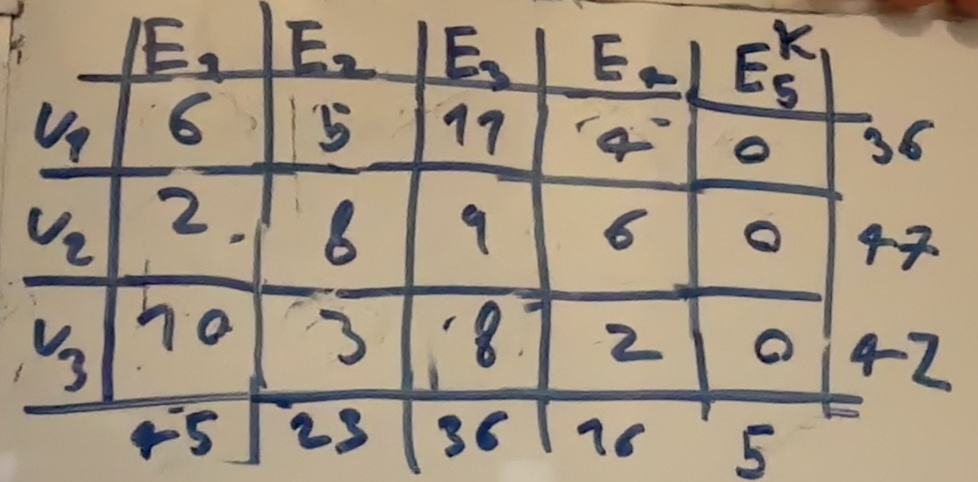 E₁ E₂ E₃ E₄ E₅ᴷ
V₁ 6 5 11 4 0 36
V₂ 2 8 9 6 0 47
V₃ 10 3 8 2 0 42
45 23 36 16 5